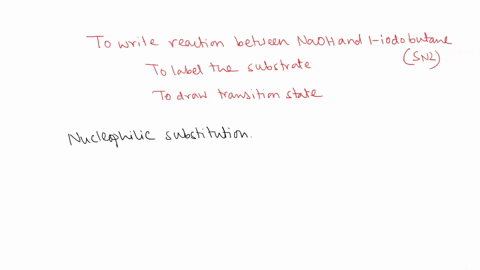 To write reaction between NaOH and 1-iodobutane
(SN2)
To label the substrate
To draw transition state
Nucleophilic substitution.